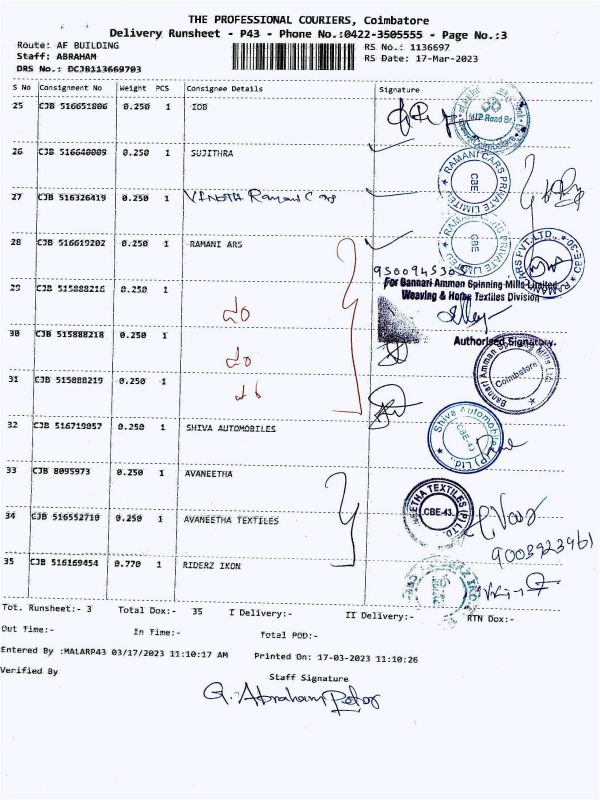 THE PROFESSIONAL COURIERS, Coimbatore
Delivery Runsheet - P43 - Phone No.:0422-3505555 - Page No.:3
Route: AF BUILDING RS No.: 1136697
Staff: ABRAHAM RS Date: 17-Mar-2023
DRS No.: DCJB113669703
S No Consignment No Weight PCS Consignee Details Signature
25 CJB 516651806 0.250 1 IOB
MTP Road Br.
26 CJB 516640009 0.250 1 SUJITHRA
RAMANI CARS PRIVATE LIMITED CBE
27 CJB 516326419 0.250 1 VINOTH Ramani Cars
RAMANI CARS PRIVATE LIMITED CBE
28 CJB 516619202 0.250 1 RAMANI ARS
RAMANI CARS PVT. LTD., CBE-30
29 CJB 515888216 0.250 1
For Bannari Amman Spinning Mills Limited
Weaving & Home Textiles Division
30 CJB 515888218 0.250 1
Authorised Signatory.
Bannari Amman Spinning Mills Ltd Coimbatore
31 CJB 515888219 0.250 1
32 CJB 516719057 0.250 1 SHIVA AUTOMOBILES
Shiva Automobiles (P) Ltd CBE-43
33 CJB 8095973 0.250 1 AVANEETHA
34 CJB 516552710 0.250 1 AVANEETHA TEXTILES
NEETHA TEXTILES (P) LTD CBE-43.
9003923961
35 CJB 516169454 0.770 1 RIDERZ IKON
Tot. Runsheet:- 3 Total Dox:- 35 I Delivery:- II Delivery:- RTN Dox:-
Out Time:- In Time:- Total POD:-
Entered By :MALARP43 03/17/2023 11:10:17 AM Printed On: 17-03-2023 11:10:26
Verified By Staff Signature
G. Abraham Peter